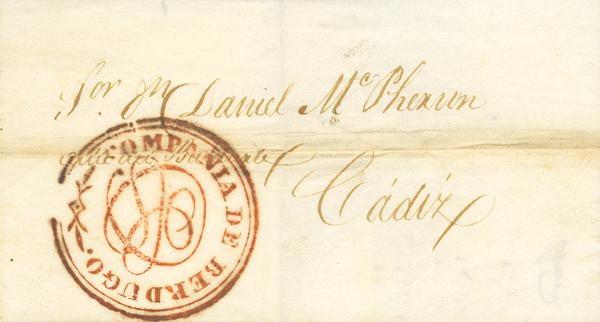 Sor. Dn. Daniel McPherson
Cádiz
COMPAÑIA DE BERDUGO.